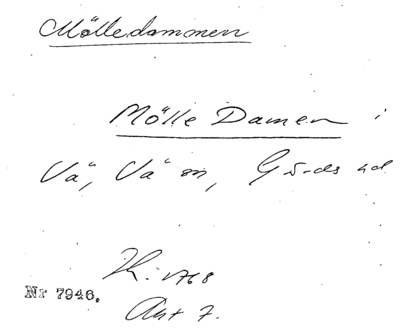 Mölledammen
Mölle Damen i
Vä, Vä sn, Gärds hd
K: 1768
Nr 7946.
Akt 7.